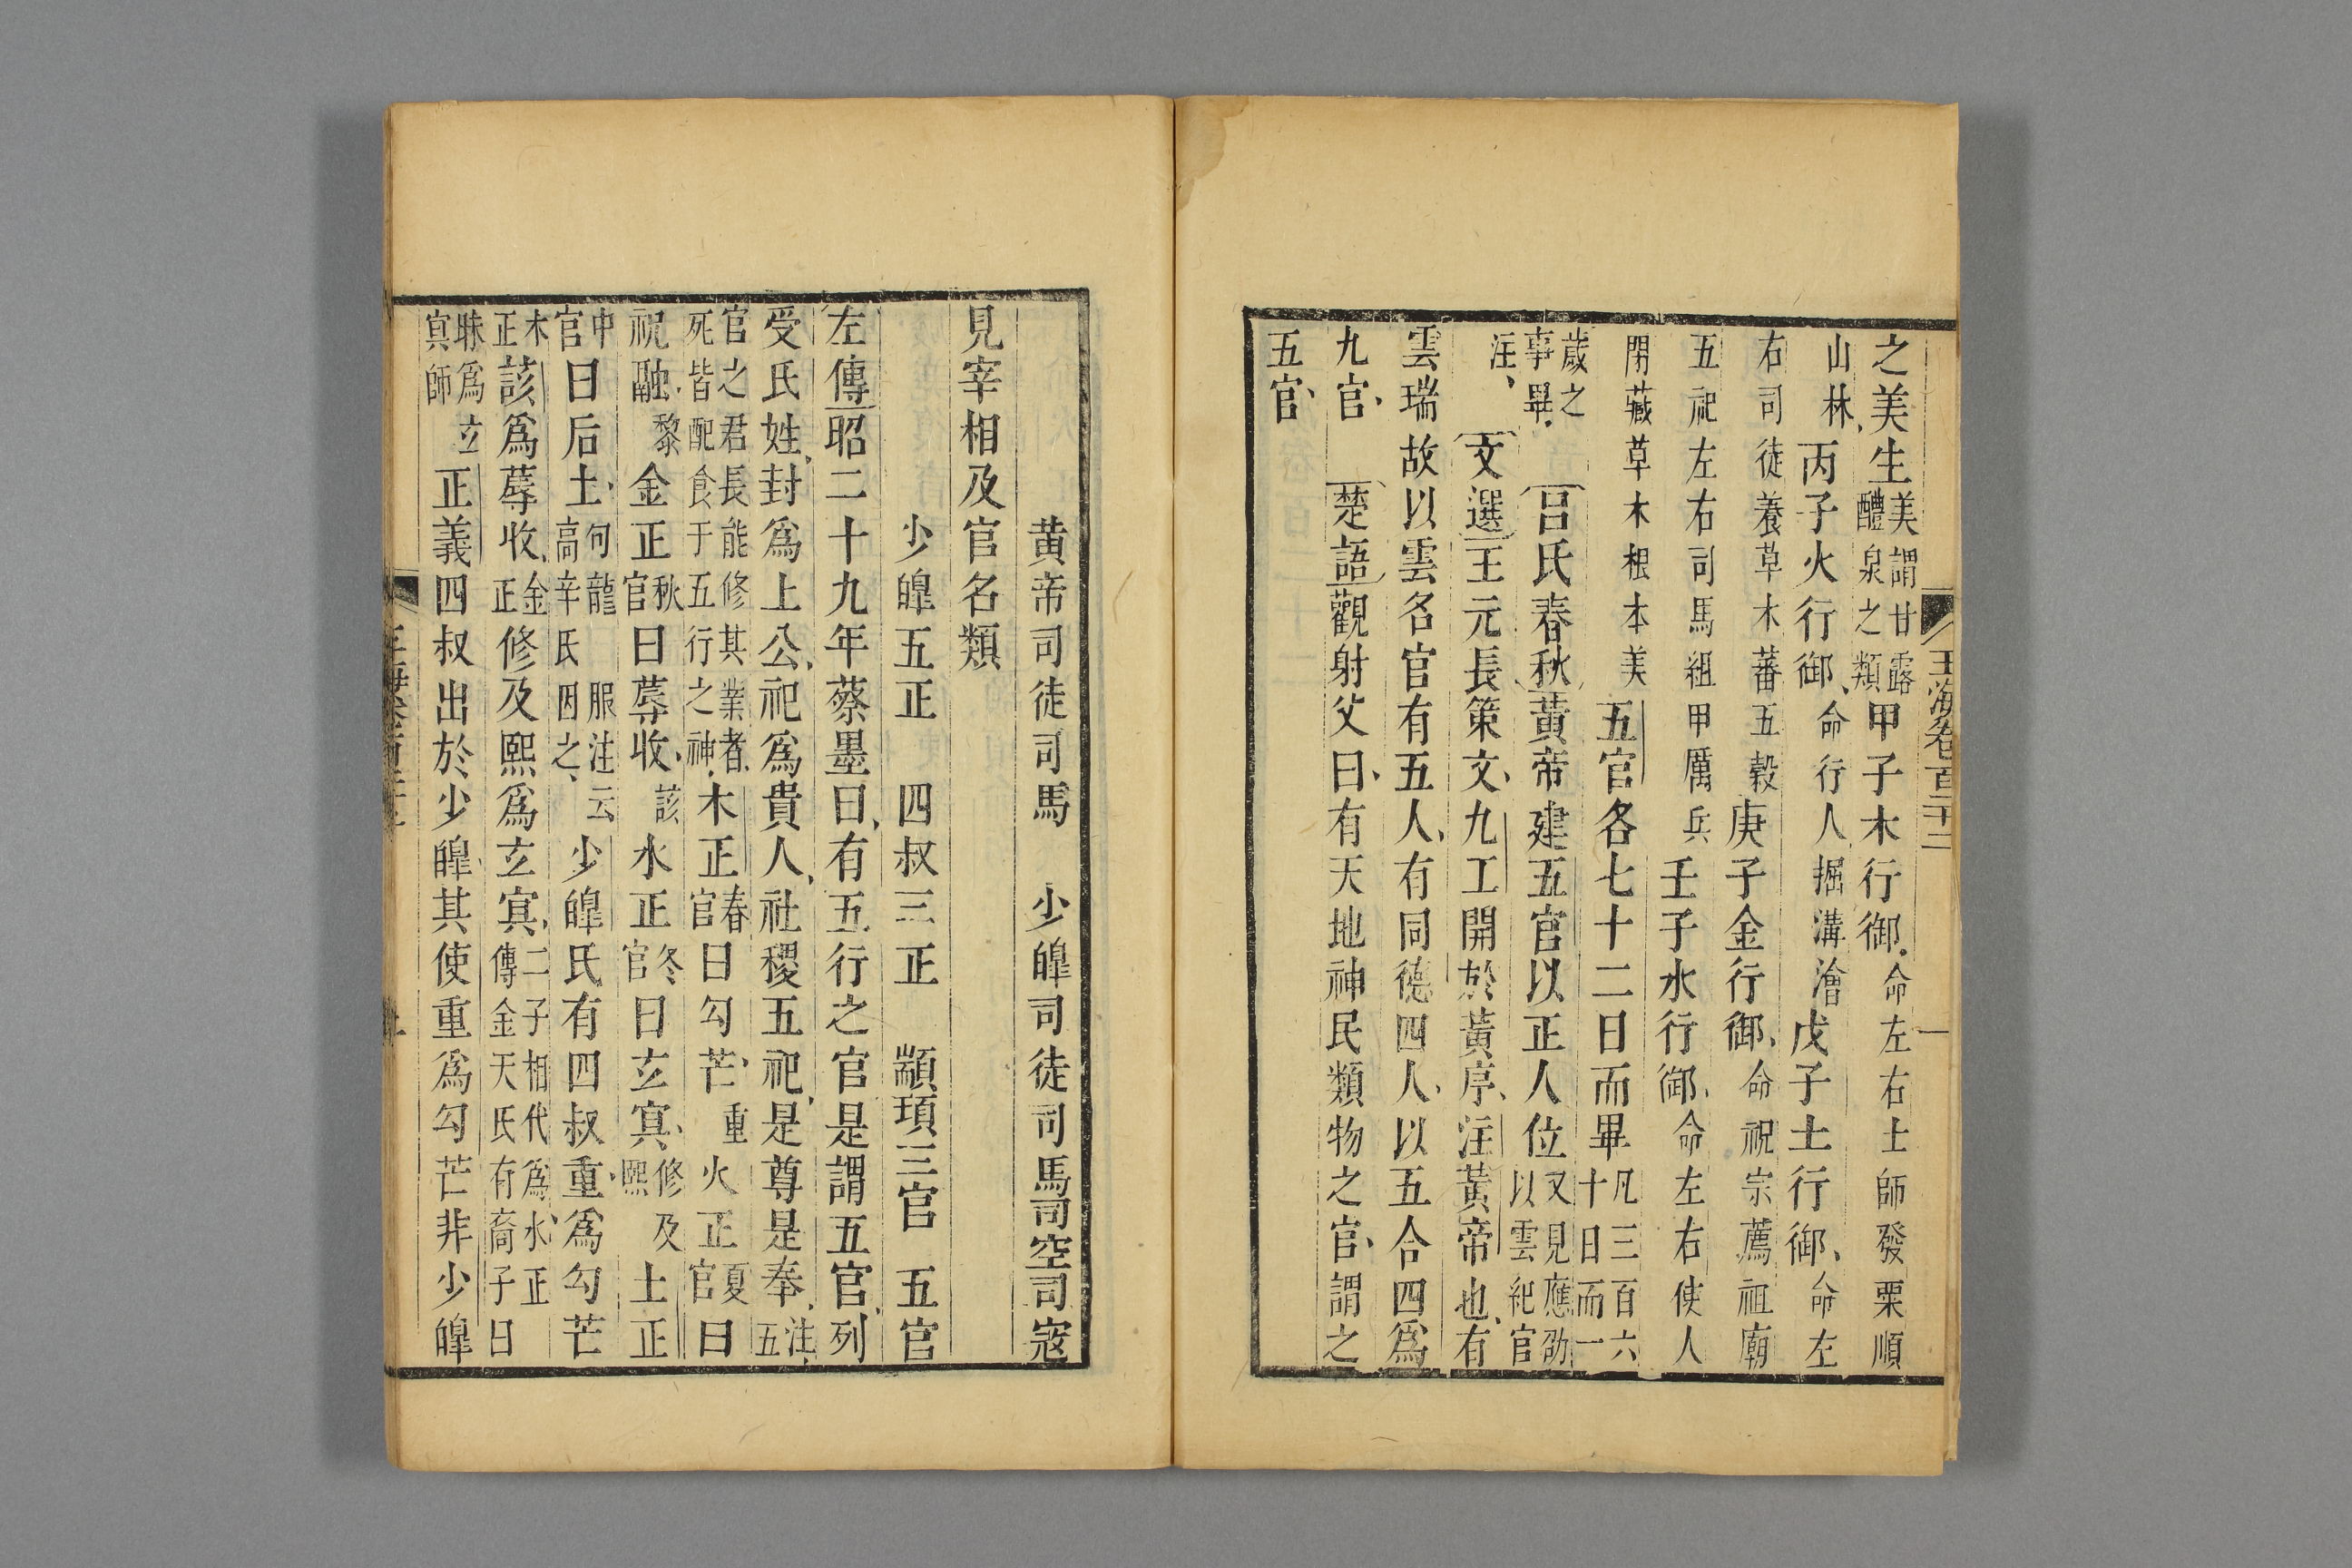 玉海卷百二十二
之美生美謂甘露醴泉之類甲子木行御命左右士師發粟順
山林丙子火行御命行人掘溝澮戊子土行御命左
右司徒養草木蕃五穀庚子金行御命祝宗薦祖廟
五祀左右司馬組甲厲兵壬子水行御命左右使人
閉藏草木根本美五官各七十二日而畢凡三百六十日而一
歲之事畢呂氏春秋黃帝建五官以正人位又見應劭以雲紀官
注文選王元長策文九工開於黃序注黃帝也有
雲瑞故以雲名官有五人有同德四人以五合四爲
九官楚語觀射父曰有天地神民類物之官謂之
五官
黃帝司徒司馬 少皥司徒司馬司空司寇
見宰相及官名類
少皥五正 四叔三正 顓頊三官 五官
左傳昭二十九年蔡墨曰有五行之官是謂五官列
受氏姓封爲上公祀爲貴人社稷五祀是尊是奉注五
官之君長能修其業者死皆配食于五行之神木正春官曰勾芒重火正夏官曰
祝融黎金正秋官曰蓐收該水正冬官曰玄冥修及熙土正
中官曰后土句龍服注云高辛氏因之少皥氏有四叔重爲勾芒
木正該爲蓐收金正修及熙爲玄冥二子相代爲水正傳金天氏有裔子曰
昧爲玄冥師正義四叔出於少皥其使重爲勾芒非少皥